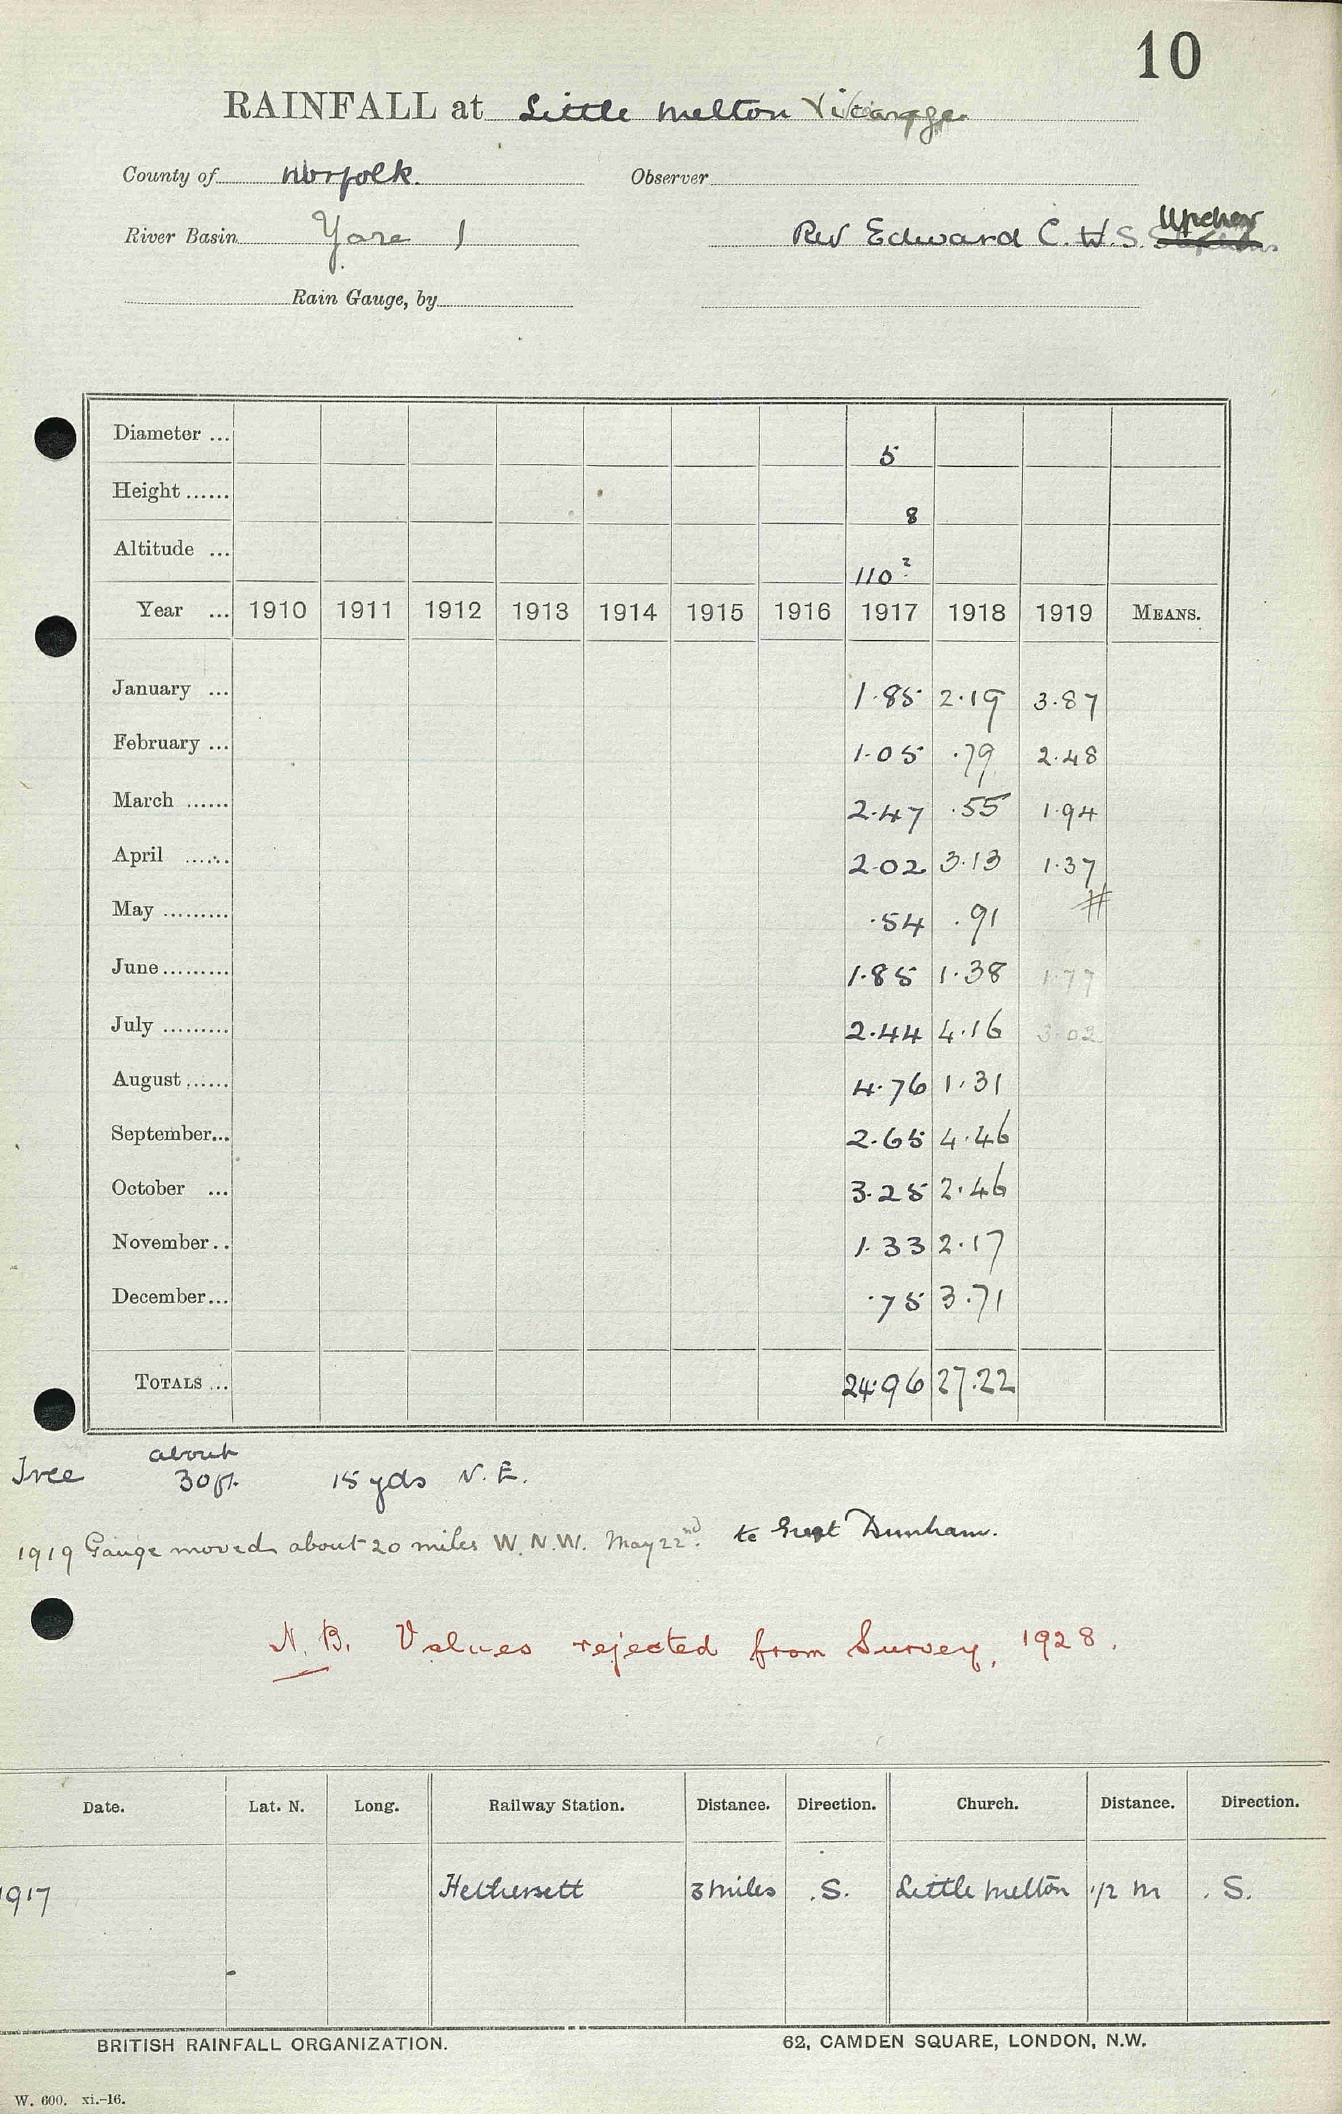 10
RAINFALL at Little Melton Vicarage
County of Norfolk. Observer
River Basin Yare 1 Rev Edward C. W. S. Upcher
Rain Gauge, by
Diameter ... 5
Height ...... 8
Altitude ... 110?
Year ... 1910 1911 1912 1913 1914 1915 1916 1917 1918 1919 MEANS.
January ... 1.85 2.19 3.87
February ... 1.05 .79 2.48
March ...... 2.47 .55 1.94
April ...... 2.02 3.13 1.37
May ......... .54 .91 #
June......... 1.85 1.38 1.77
July ......... 2.44 4.16 3.02
August ...... 4.76 1.31
September... 2.65 4.46
October ... 3.25 2.46
November.. 1.33 2.17
December... .75 3.71
TOTALS ... 24.96 27.22
Tree about 30ft. 15 yds N.E.
1919 Gauge moved about 20 miles W.N.W. May 22nd. to Great Dunham.
N.B. Values rejected from Survey, 1928.
Date. Lat. N. Long. Railway Station. Distance. Direction. Church. Distance. Direction.
1917 Hethersett 3 miles .S. Little Melton 1/2 m . S.
BRITISH RAINFALL ORGANIZATION. 62, CAMDEN SQUARE, LONDON, N.W.
W. 600. xi.-16.